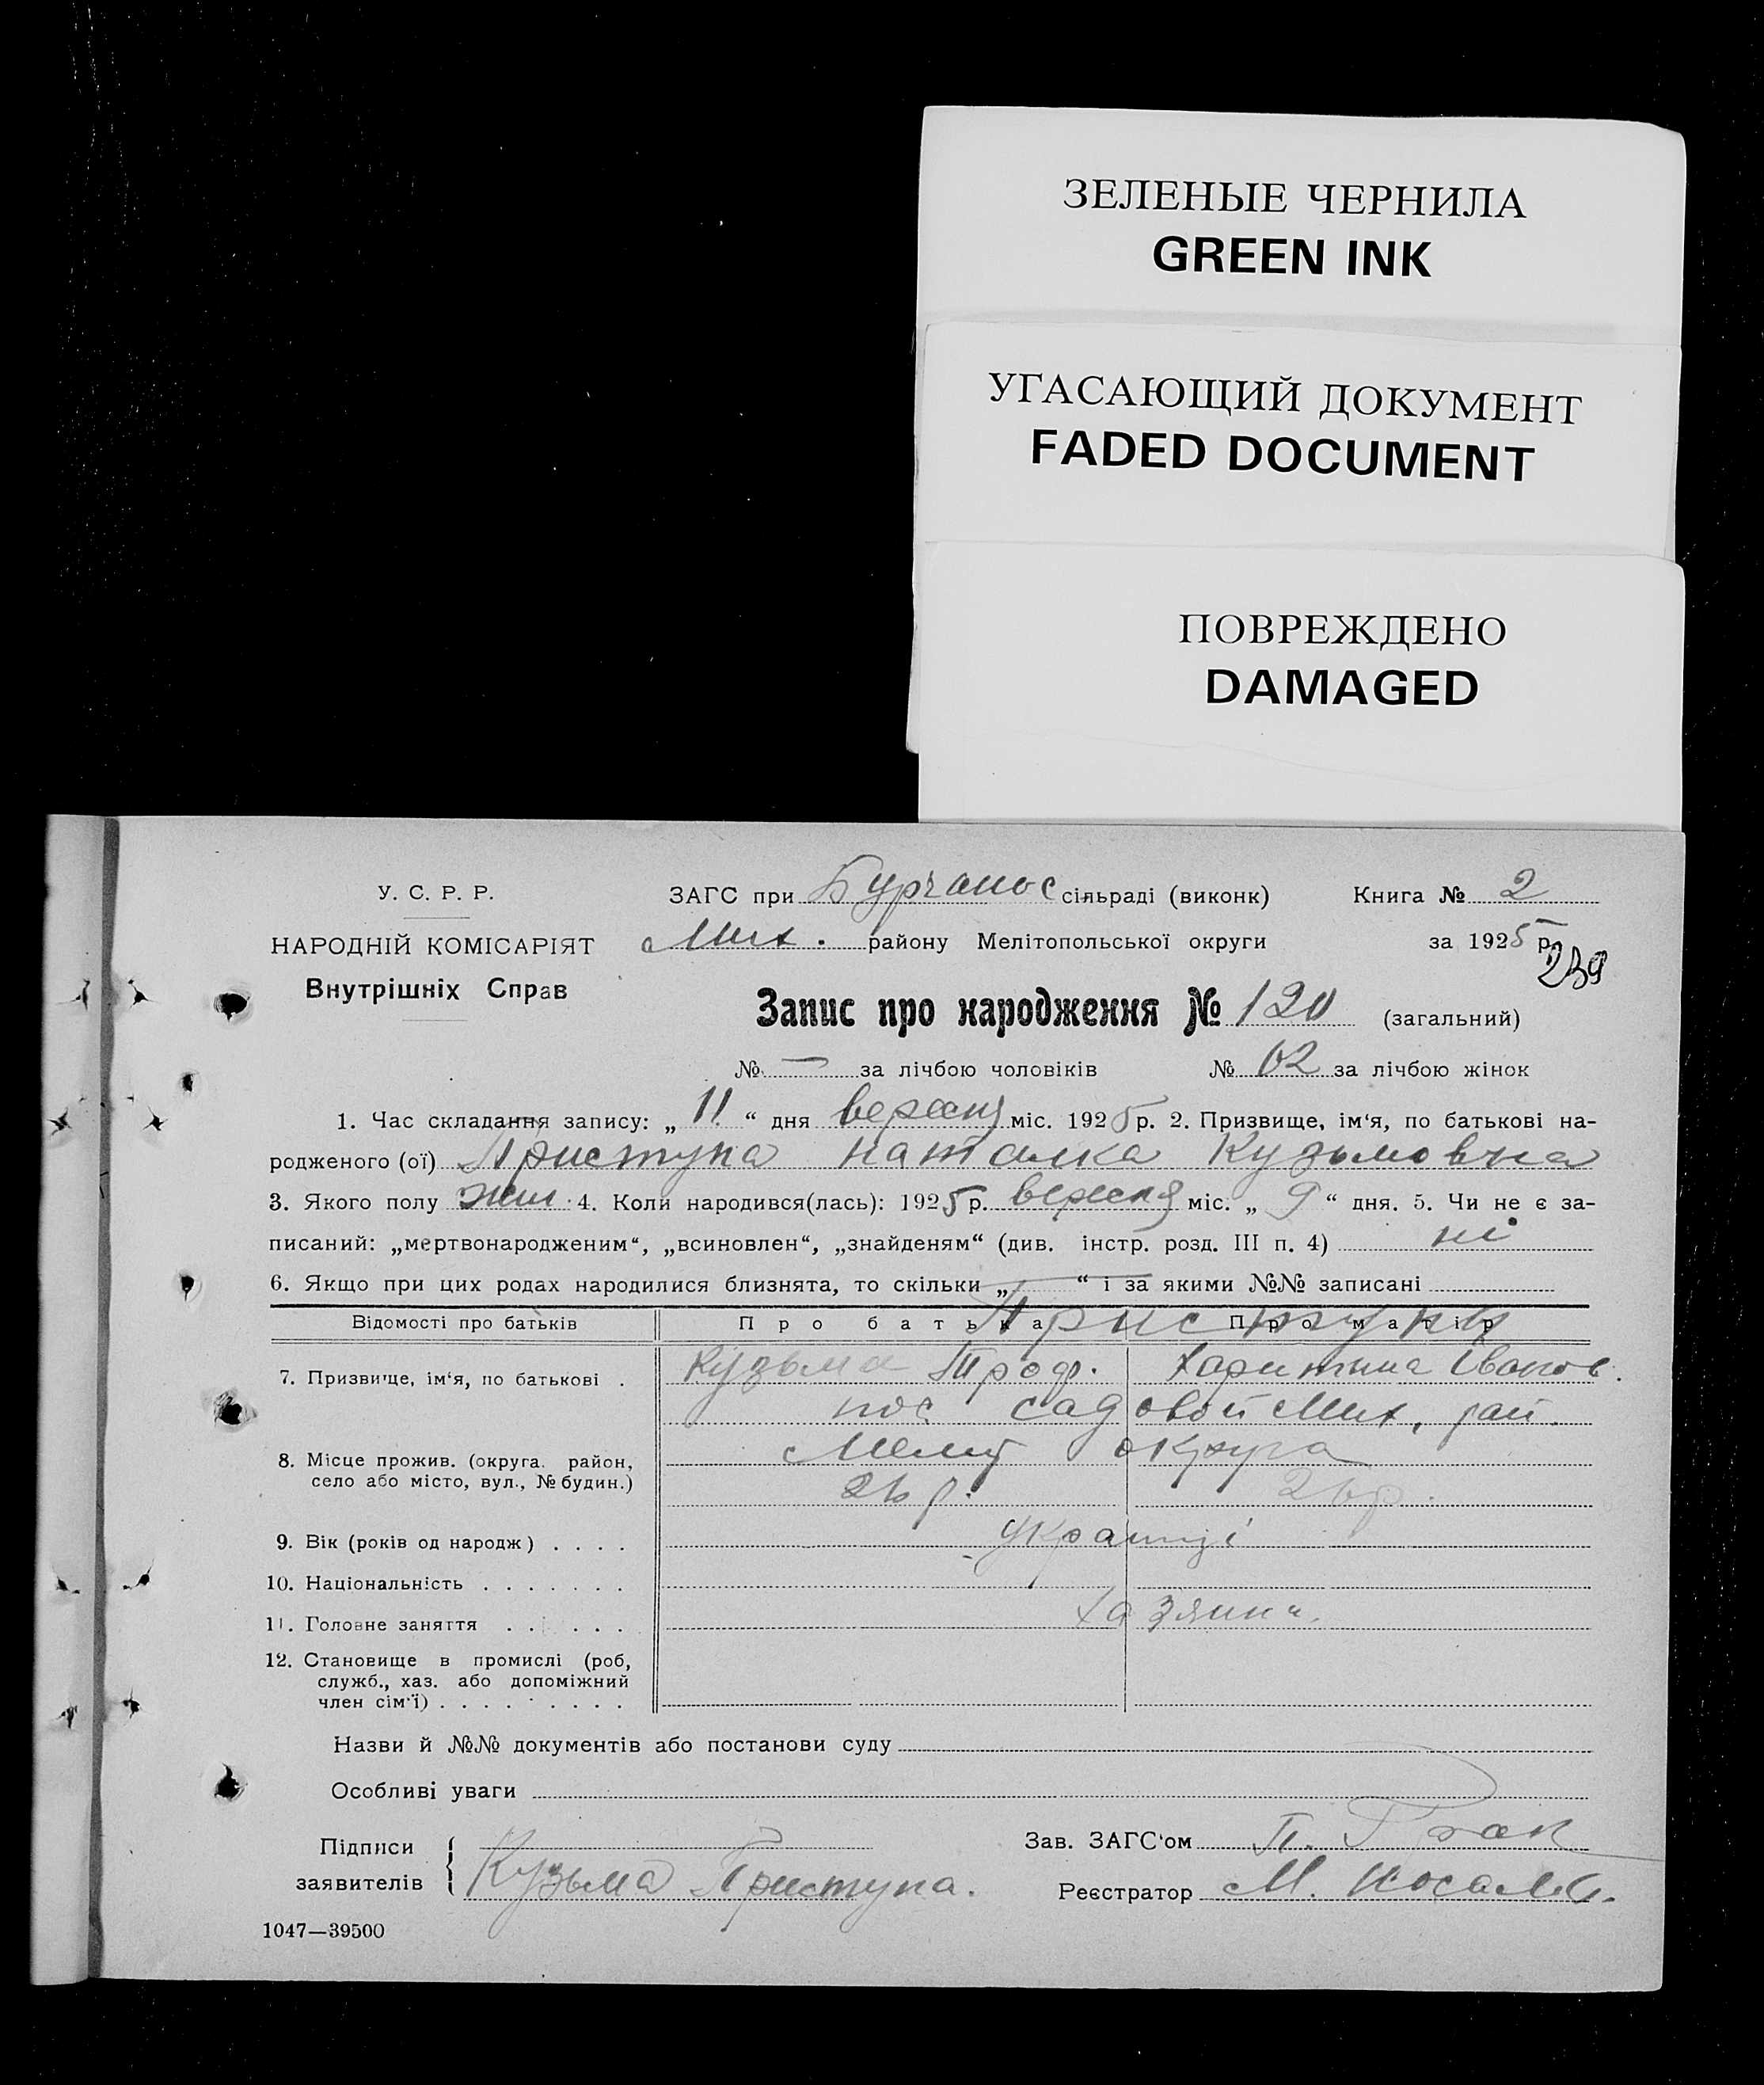 ЗЕЛЕНЫЕ ЧЕРНИЛА
GREEN INK
УГАСАЮЩИЙ ДОКУМЕНТ
FADED DOCUMENT
ПОВРЕЖДЕНО
DAMAGED
У. С. Р. Р.
НАРОДНІЙ КОМІСАРІЯТ
Внутрішніх Справ
ЗАГС при Бурчанос сільраді (виконк) Книга № 2
Мих. району Мелітопольської округи за 1925 р.
239
Запис про народження № 120 (загальний)
№ — за лічбою чоловіків № 62 за лічбою жінок
1. Час складання запису: „ 11 “ дня вересня міс. 1925 р. 2. Призвище, ім‘я, по батькові на-
родженого (ої) Приступа Наталка Кузьмовна
3. Якого полу жін. 4. Коли народився(лась): 1925 р. вересня міс. „ 9 “ дня. 5. Чи не є за-
писаний: „мертвонародженим“, „всиновлен“, „знайденям“ (див. інстр. розд. III п. 4) ні
6. Якщо при цих родах народилися близнята, то скільки „ — “ і за якими №№ записані
Відомості про батьків Про батька Про матір
Приступи
7. Призвище, ім‘я, по батькові . Кузьма Троф. Харитина Іванов.
пос садовой Мих. рай.
8. Місце прожив. (округа. район,
село або місто, вул., № будин.)
Меліт округа
26 р. 26 р.
9. Вік (років од народж) . . . .
українці
10. Національність . . . . . . .
11. Головне заняття . . . . . .
хазяини.
12. Становище в промислі (роб,
служб., хаз. або допоміжний
член сім‘ї) . . . . . . . . .
Назви й №№ документів або постанови суду
Особливі уваги
Підписи
заявителів
Кузьма Приступа.
Зав. ЗАГС‘ом П.
Реєстратор М.
1047—39500